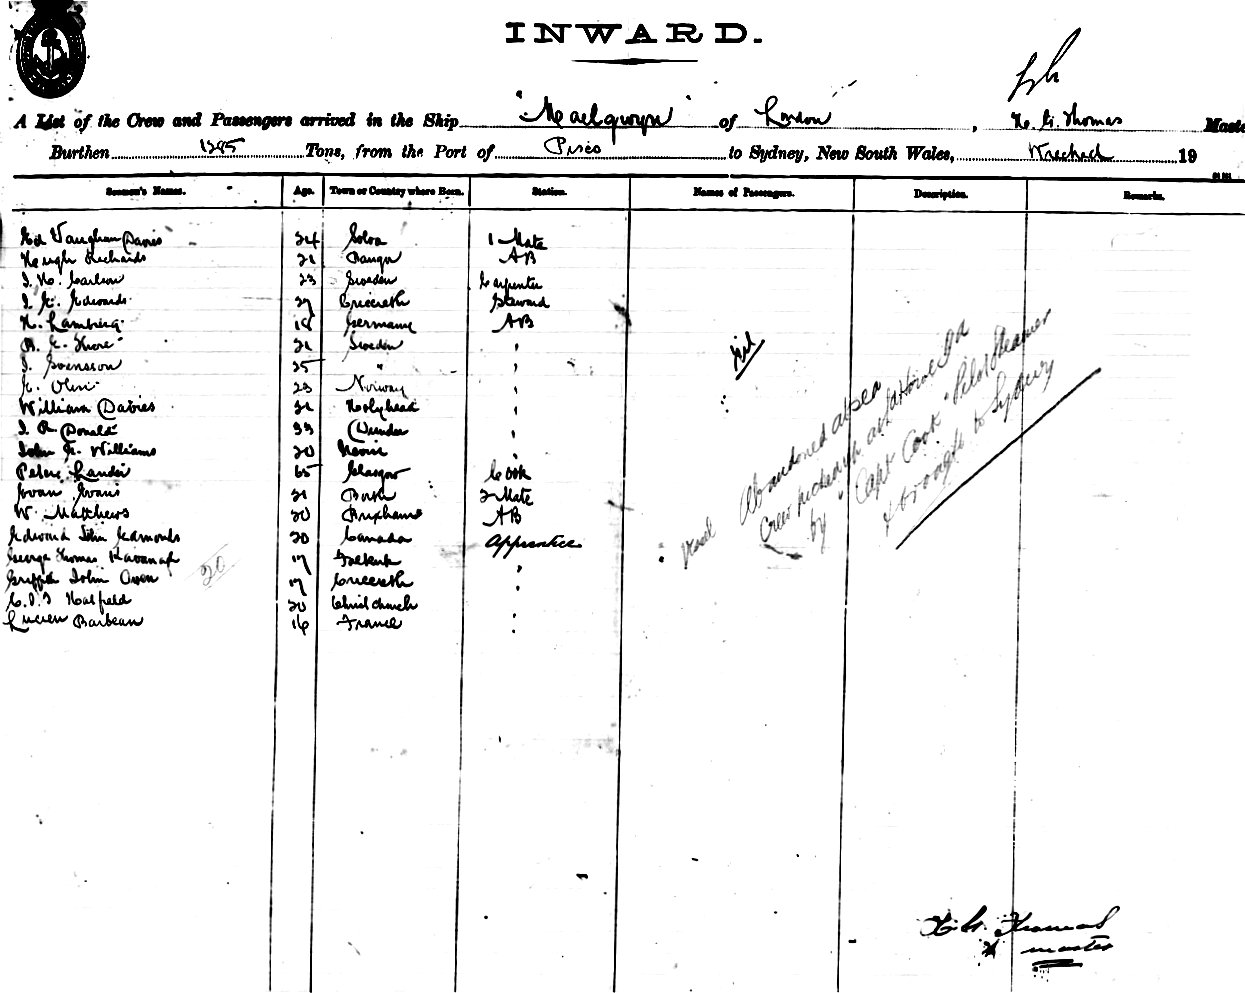 INWARD.
A List of the Crew and Passengers arrived in the Ship "Maelgwyn" of London, H. G. Thomas Maste
Burthen 1295 Tons, from the Port of Pisco to Sydney, New South Wales, Wrecked 19
Seamen's Names. Age. Town or Country where Born. Station. Names of Passengers. Description. Remarks.
Ed Vaughan Davies 24 Solva 1 Mate
Hugh Richards 21 Bangor AB
J. H. Carlson 23 Sweden Carpenter
J. E. Edwards 27 Criccieth Steward
H. Lamberg 19 Germany AB
B. E. Thore 21 Sweden '
J. Svensson 25 " '
E. Olsen 23 Norway '
William Davies 21 Holyhead '
J. R. Donald 33 Dundee '
John G. Williams 20 Nevin '
Peter Lauder 65 Glasgow Cook
Evan Evans 21 Borth 2 Mate
W. Matthews 20 Brixham AB
Edward John Edmonds 20 Canada Apprentice
George Thomas Kavanagh 17 Falkirk '
Griffith John Owen 17 Criccieth '
C. J. Hatfield 20 Christchurch '
Lucien Barbeau 16 France '
20
Nil
Vessel Abandoned at sea
Crew picked up at Howe Id
by "Capt Cook" Pilot Steamer
& brought to Sydney
H. G. Thomas
master